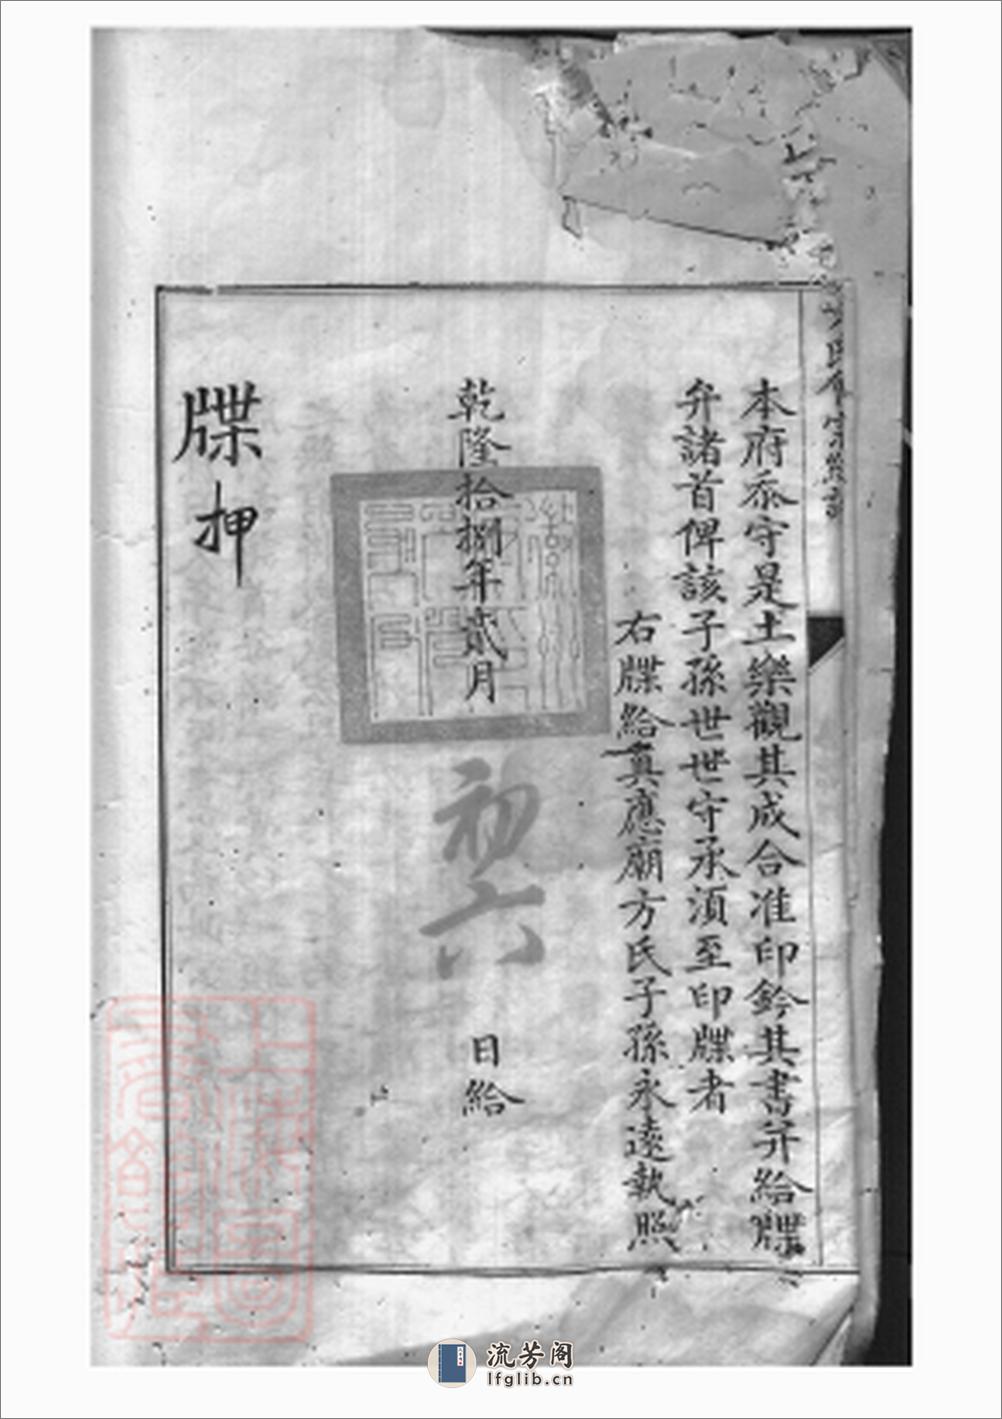 本府忝守是土樂觀其成合准印鈐其書弁給牒
弁諸首俾該子孫世世守承須至印牒者
右牒給真應廟方氏子孫永遠執照
乾隆拾捌年貳月初六日給
牒押
流芳阁
lfglib.cn